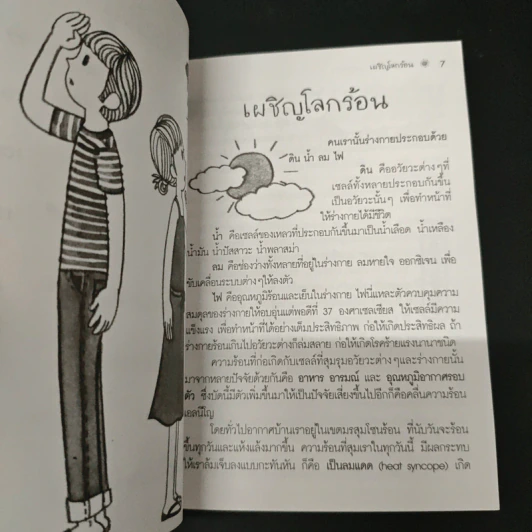 เผชิญโลกร้อน ❋ 7
เผชิญโลกร้อน
คนเรานั้นร่างกายประกอบด้วย
ดิน น้ำ ลม ไฟ
ดิน คืออวัยวะต่างๆที่
เซลล์ทั้งหลายประกอบกันขึ้น
เป็นอวัยวะนั้นๆ เพื่อทำหน้าที่
ให้ร่างกายได้มีชีวิต
น้ำ คือเซลล์ของเหลวที่ประกอบกันขึ้นมาเป็นน้ำเลือด น้ำเหลือง
น้ำมัน น้ำปัสสาวะ น้ำพลาสม่า
ลม คือช่องว่างทั้งหลายที่อยู่ในร่างกาย ลมหายใจ ออกซิเจน เพื่อ
ขับเคลื่อนระบบต่างๆให้ลงตัว
ไฟ คืออุณหภูมิร้อนและเย็นในร่างกาย ไฟนี่แหละตัวควบคุมความ
สมดุลของร่างกายให้อบอุ่นแต่พอดีที่ 37 องศาเซลเซียส ให้เซลล์มีความ
แข็งแรง เพื่อทำหน้าที่ได้อย่างเต็มประสิทธิภาพ ก่อให้เกิดประสิทธิผล ถ้า
ร่างกายร้อนเกินไปอวัยวะต่างก็ล่มสลาย ก่อให้เกิดโรคร้ายแรงนานาชนิด
ความร้อนที่ก่อเกิดกับเซลล์ที่สุมรุมอวัยวะต่างๆและร่างกายนั้น
มาจากหลายปัจจัยด้วยกันคือ อาหาร อารมณ์ และ อุณหภูมิอากาศรอบ
ตัว ซึ่งบัดนี้มีตัวเพิ่มขึ้นมาให้เป็นปัจจัยเสี่ยงขึ้นไปอีกก็คือคลื่นความร้อน
เอลนีโญ
โดยทั่วไปอากาศบ้านเราอยู่ในเขตมรสุมโซนร้อน ที่นับวันจะร้อน
ขึ้นทุกวันและแห้งแล้งมากขึ้น ความร้อนที่สุมเราในทุกวันนี้ มีผลกระทบ
ให้เราล้มเจ็บลงแบบกะทันหัน ก็คือ เป็นลมแดด (heat syncope) เกิด